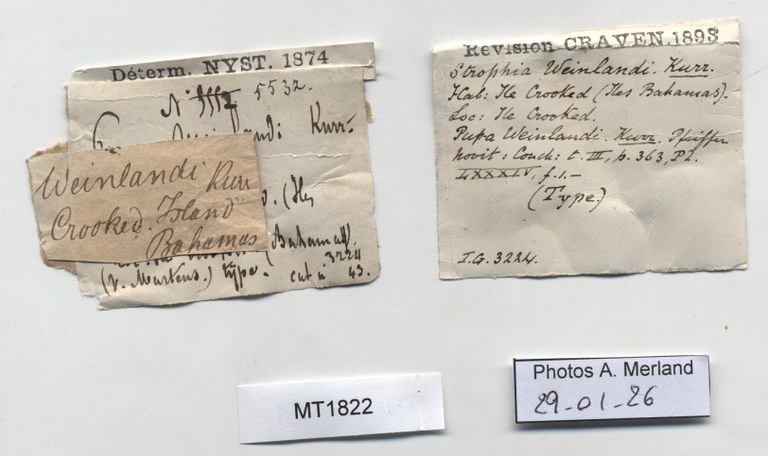 Déterm. NYST. 1874
N° 5532.
Kurr.
Weinlandi Kurr
Crooked Island
Bahamas
(Iles
Bahamas).
3224
(v. Martens.) type. cat à 43.
Révision CRAVEN.1893
Strophia Weinlandi. Kurr.
Hab: Ile Crooked (Iles Bahamas).
Loc: Ile Crooked.
Pupa Weinlandi. Kurr. Pfeiffer
novit: Conch: t. III, p. 363, Pl.
LXXXIV, f. 1.-
(Type.)
I.G. 3224.
MT1822
Photos A. Merland
29-01-26